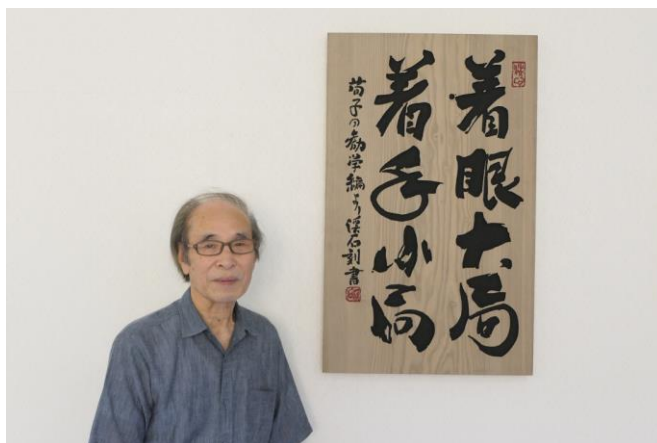 着眼大局
着手小局
荀子の勧学編より渓石刻書